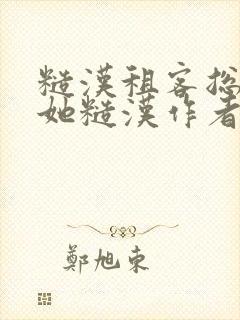 糙漢租客捴
她糙漢作者
鄭旭東